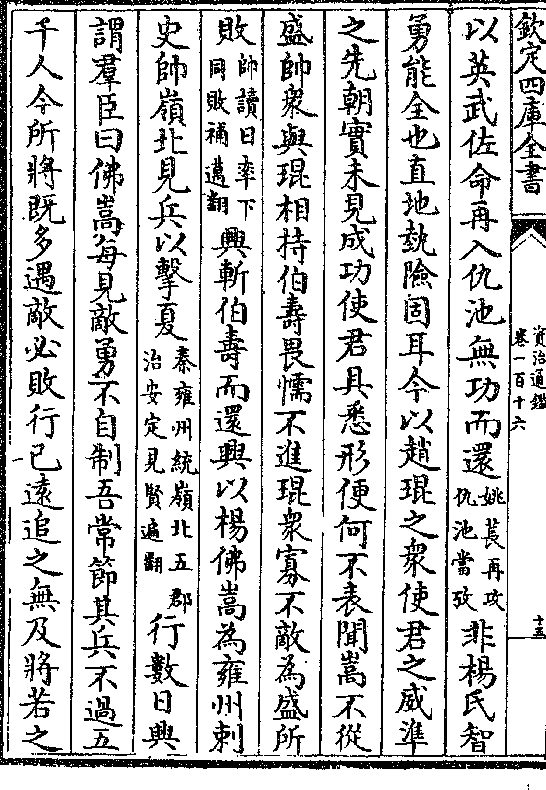 欽定四庫全書
資治通鑑
卷一百十六
十五
以英武佐命再入仇池無功而還姚萇再攻仇池當攷非楊氏智
勇能全也直地執險固耳今以趙琨之衆使君之威準
之先朝實未見成功使君具悉形便何不表聞嵩不從
盛帥衆與琨相持伯壽畏懦不進琨衆寡不敵為盛所
敗帥讀曰率下同敗補邁翻興斬伯壽而還興以楊佛嵩為雍州刺
史帥嶺北見兵以擊夏秦雍州統嶺北五郡治安定見賢遍翻行數日興
謂羣臣曰佛嵩每見敵勇不自制吾常節其兵不過五
千人今所將既多遇敵必敗行已遠追之無及將若之